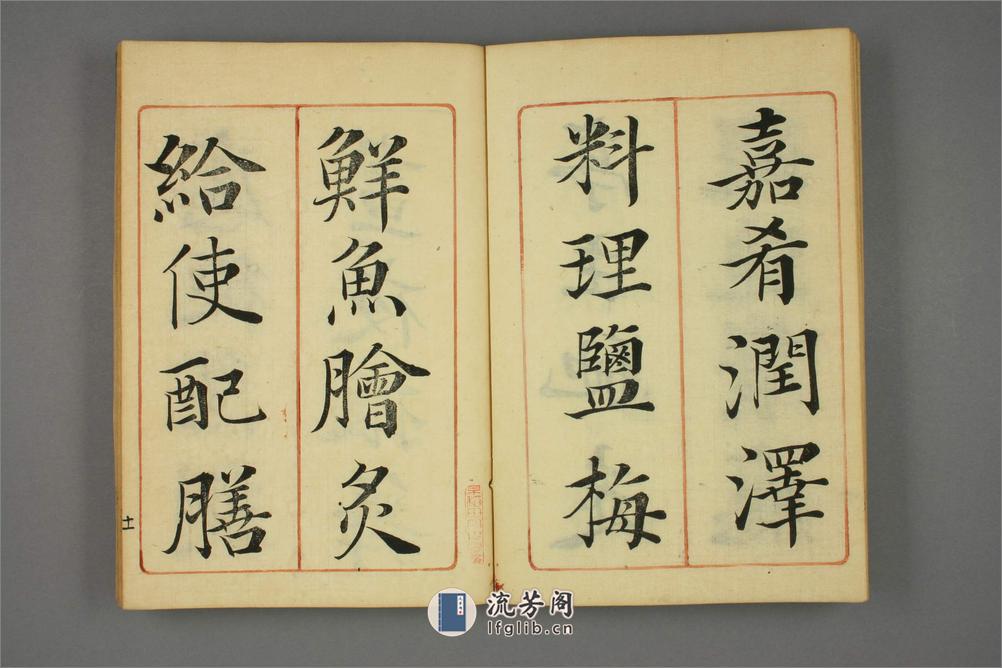 嘉肴潤澤
料理鹽梅
鮮魚膾炙
給使配膳
十一
流芳阁
lfglib.cn